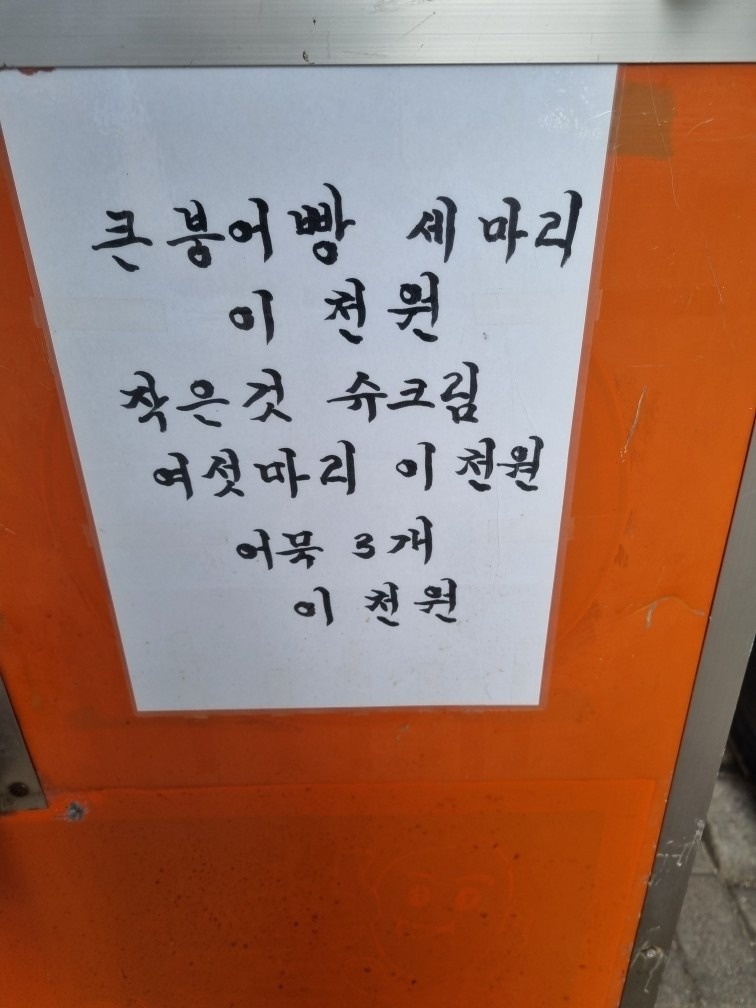 큰붕어빵 세마리
이 천원
작은것 슈크림
여섯마리 이천원
어묵 3개
이 천원